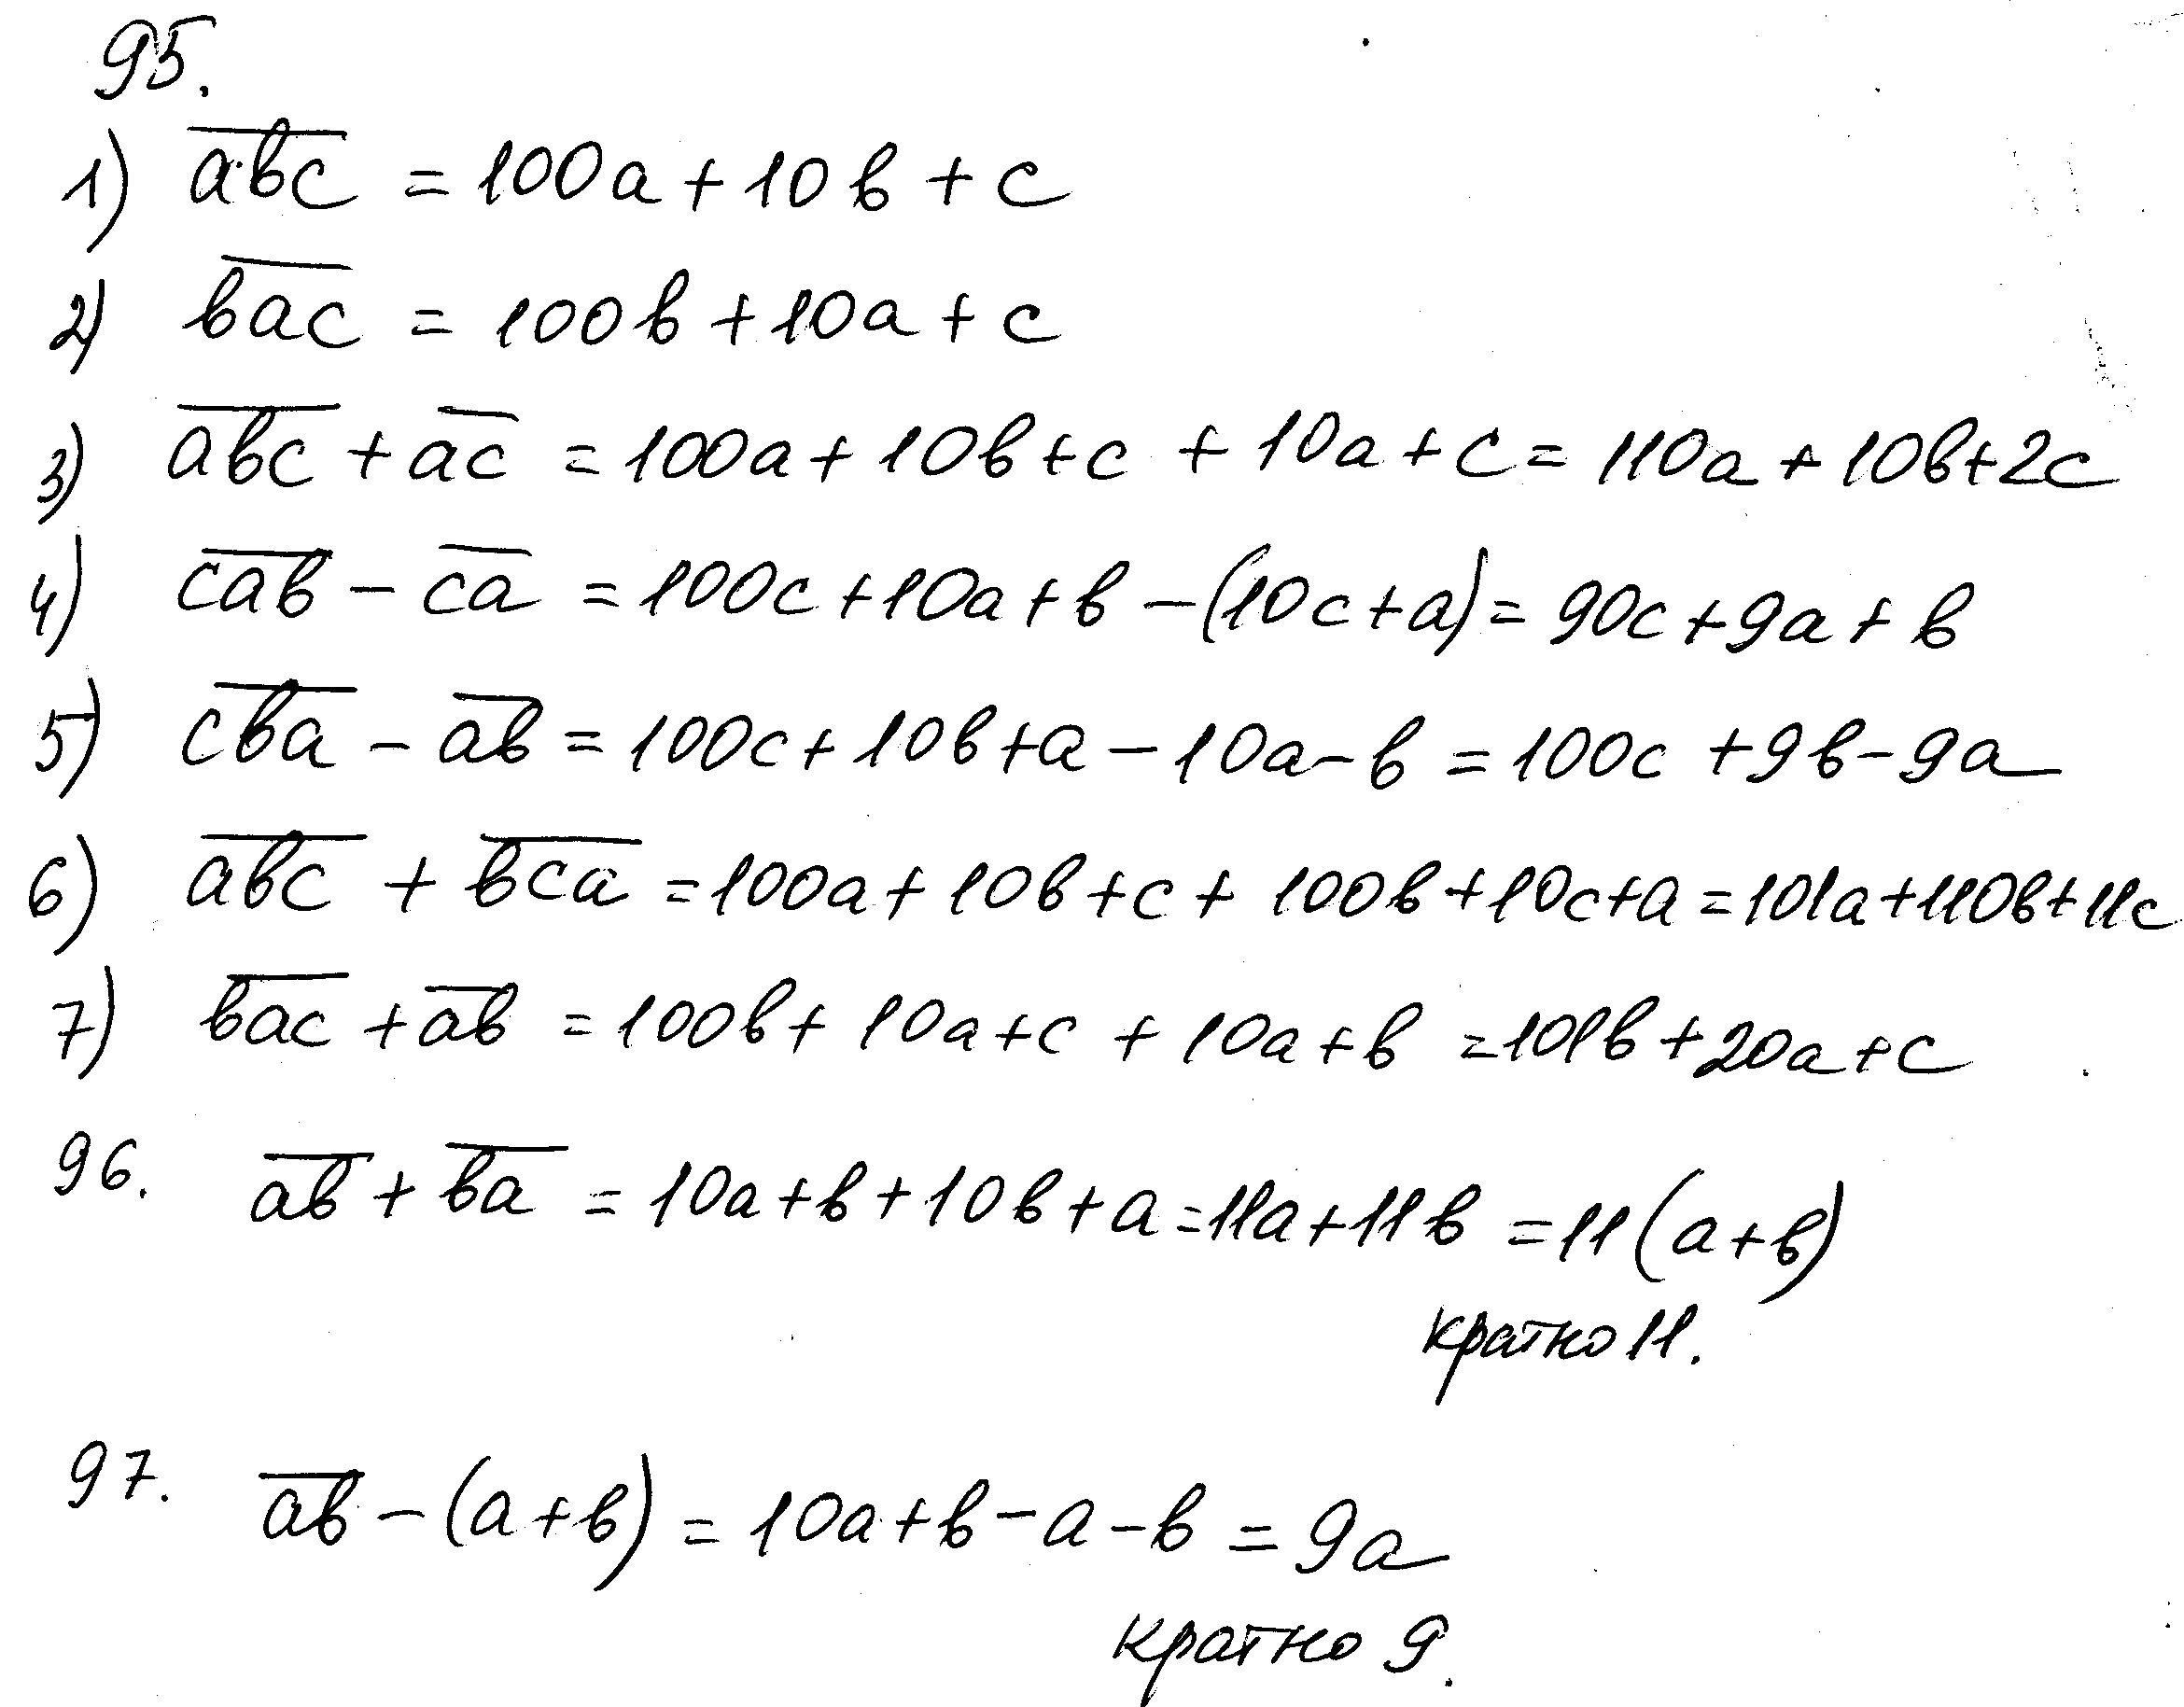 95.
1) a̅b̅c̅ = 100a + 10b + c
2) b̅a̅c̅ = 100b + 10a + c
3) a̅b̅c̅ + a̅c̅ = 100a + 10b + c + 10a + c = 110a + 10b + 2c
4) c̅a̅b̅ - c̅a̅ = 100c + 10a + b - (10c + a) = 90c + 9a + b
5) c̅b̅a̅ - a̅b̅ = 100c + 10b + a - 10a - b = 100c + 9b - 9a
6) a̅b̅c̅ + b̅c̅a̅ = 100a + 10b + c + 100b + 10c + a = 101a + 110b + 11c
7) b̅a̅c̅ + a̅b̅ = 100b + 10a + c + 10a + b = 101b + 20a + c
96. a̅b̅ + b̅a̅ = 10a + b + 10b + a = 11a + 11b = 11(a + b)
кратно 11.
97. a̅b̅ - (a + b) = 10a + b - a - b = 9a
кратно 9.